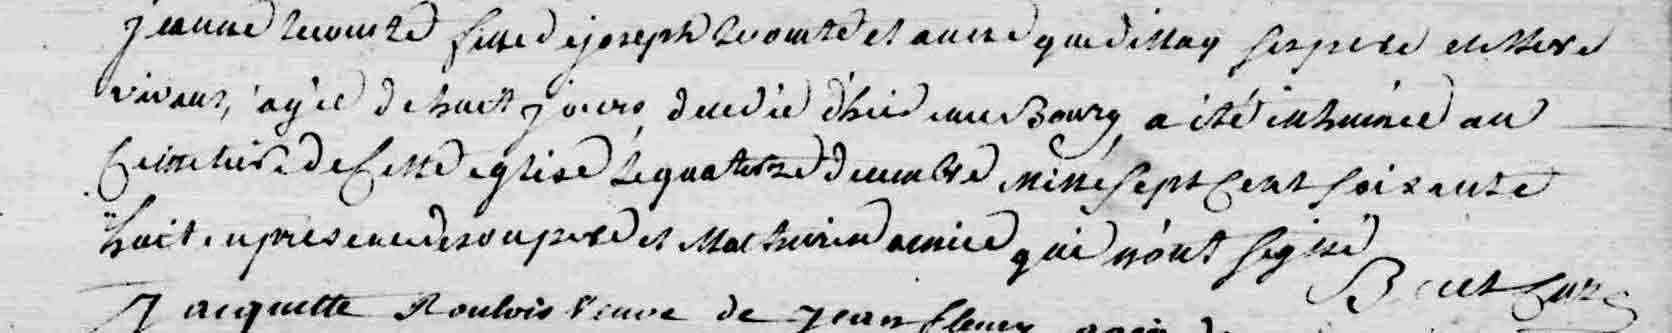 jeanne lecomte fille de joseph lecomte et anne quedillay ses pere et mere
vivant, agée de huit jours, decedée d'hier au Bourg, a été inhumée au
Cimetiere de Cette eglise le quatorze decembre mil sept Cent soixante
huit en presence de son pere et Mathurin qui n'ont signé
B Curé
Jacquette veuve de jean